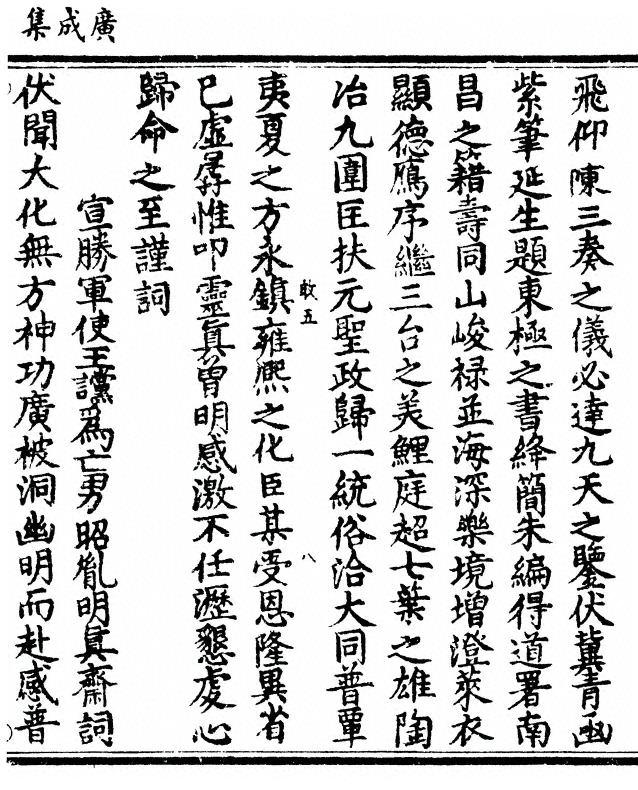 廣成集
飛仰陳三奏之儀必達九天之鑒伏冀青凾
紫筆延生題東極之書絳簡朱編得道署南
昌之籍壽同山峻祿並海深樂境增澄萊衣
顯德鴈序繼三台之美鯉庭超七葉之雄陶
冶九圍匡扶元聖政歸一統俗洽大同普覃
敢五
八
夷夏之方永鎮雍熙之化臣某受恩隆異省
已虛孱惟叩靈真冐明感激不任瀝懇虔心
歸命之至謹詞
宣勝軍使王讜爲亡男昭胤明真齋詞
伏聞大化無方神功廣被洞幽明而赴感普